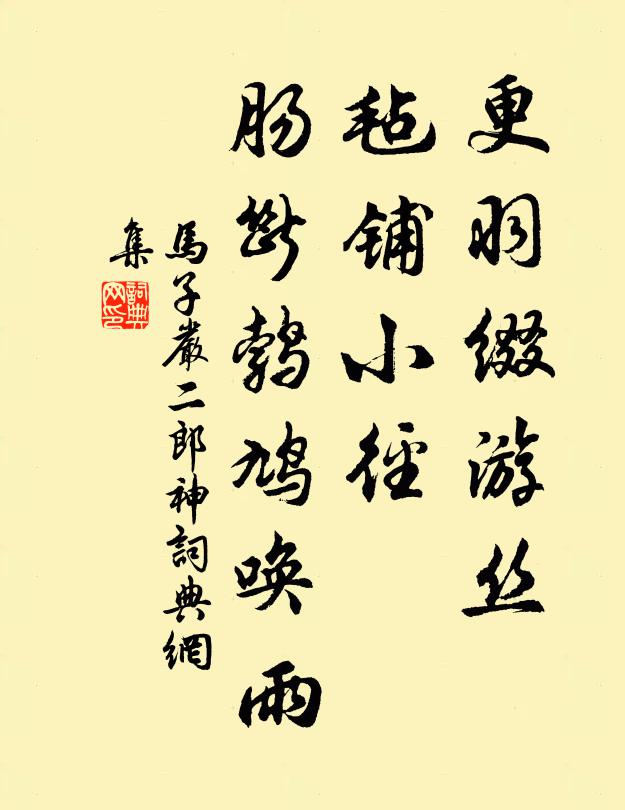 更羽缀游丝
毡铺小徑
肠斷鹁鸠唤雨
馬子嚴二郎神詞典網
集
詞典网印